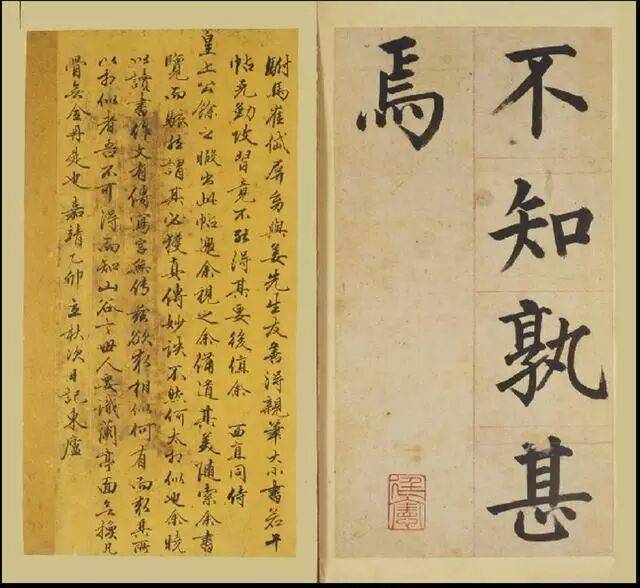 不知孰甚
焉
駙馬崔岱屏與姜先生友善得親筆大小書若干
帖尤勤攻習竟不能得其要後值余 西直同侍
皇上公餘之暇出此帖過余視之余備道其美隨索余書
覽而謂其必獲真傳妙訣不然何太相似也余曉
以讀書作文有傳寫字無傳茲欲求相似何有而求其所
以相似者吾不可得而知山谷言世人要識蘭亭面無換凡
骨無金丹是也 嘉靖乙卯立秋次日記東廬